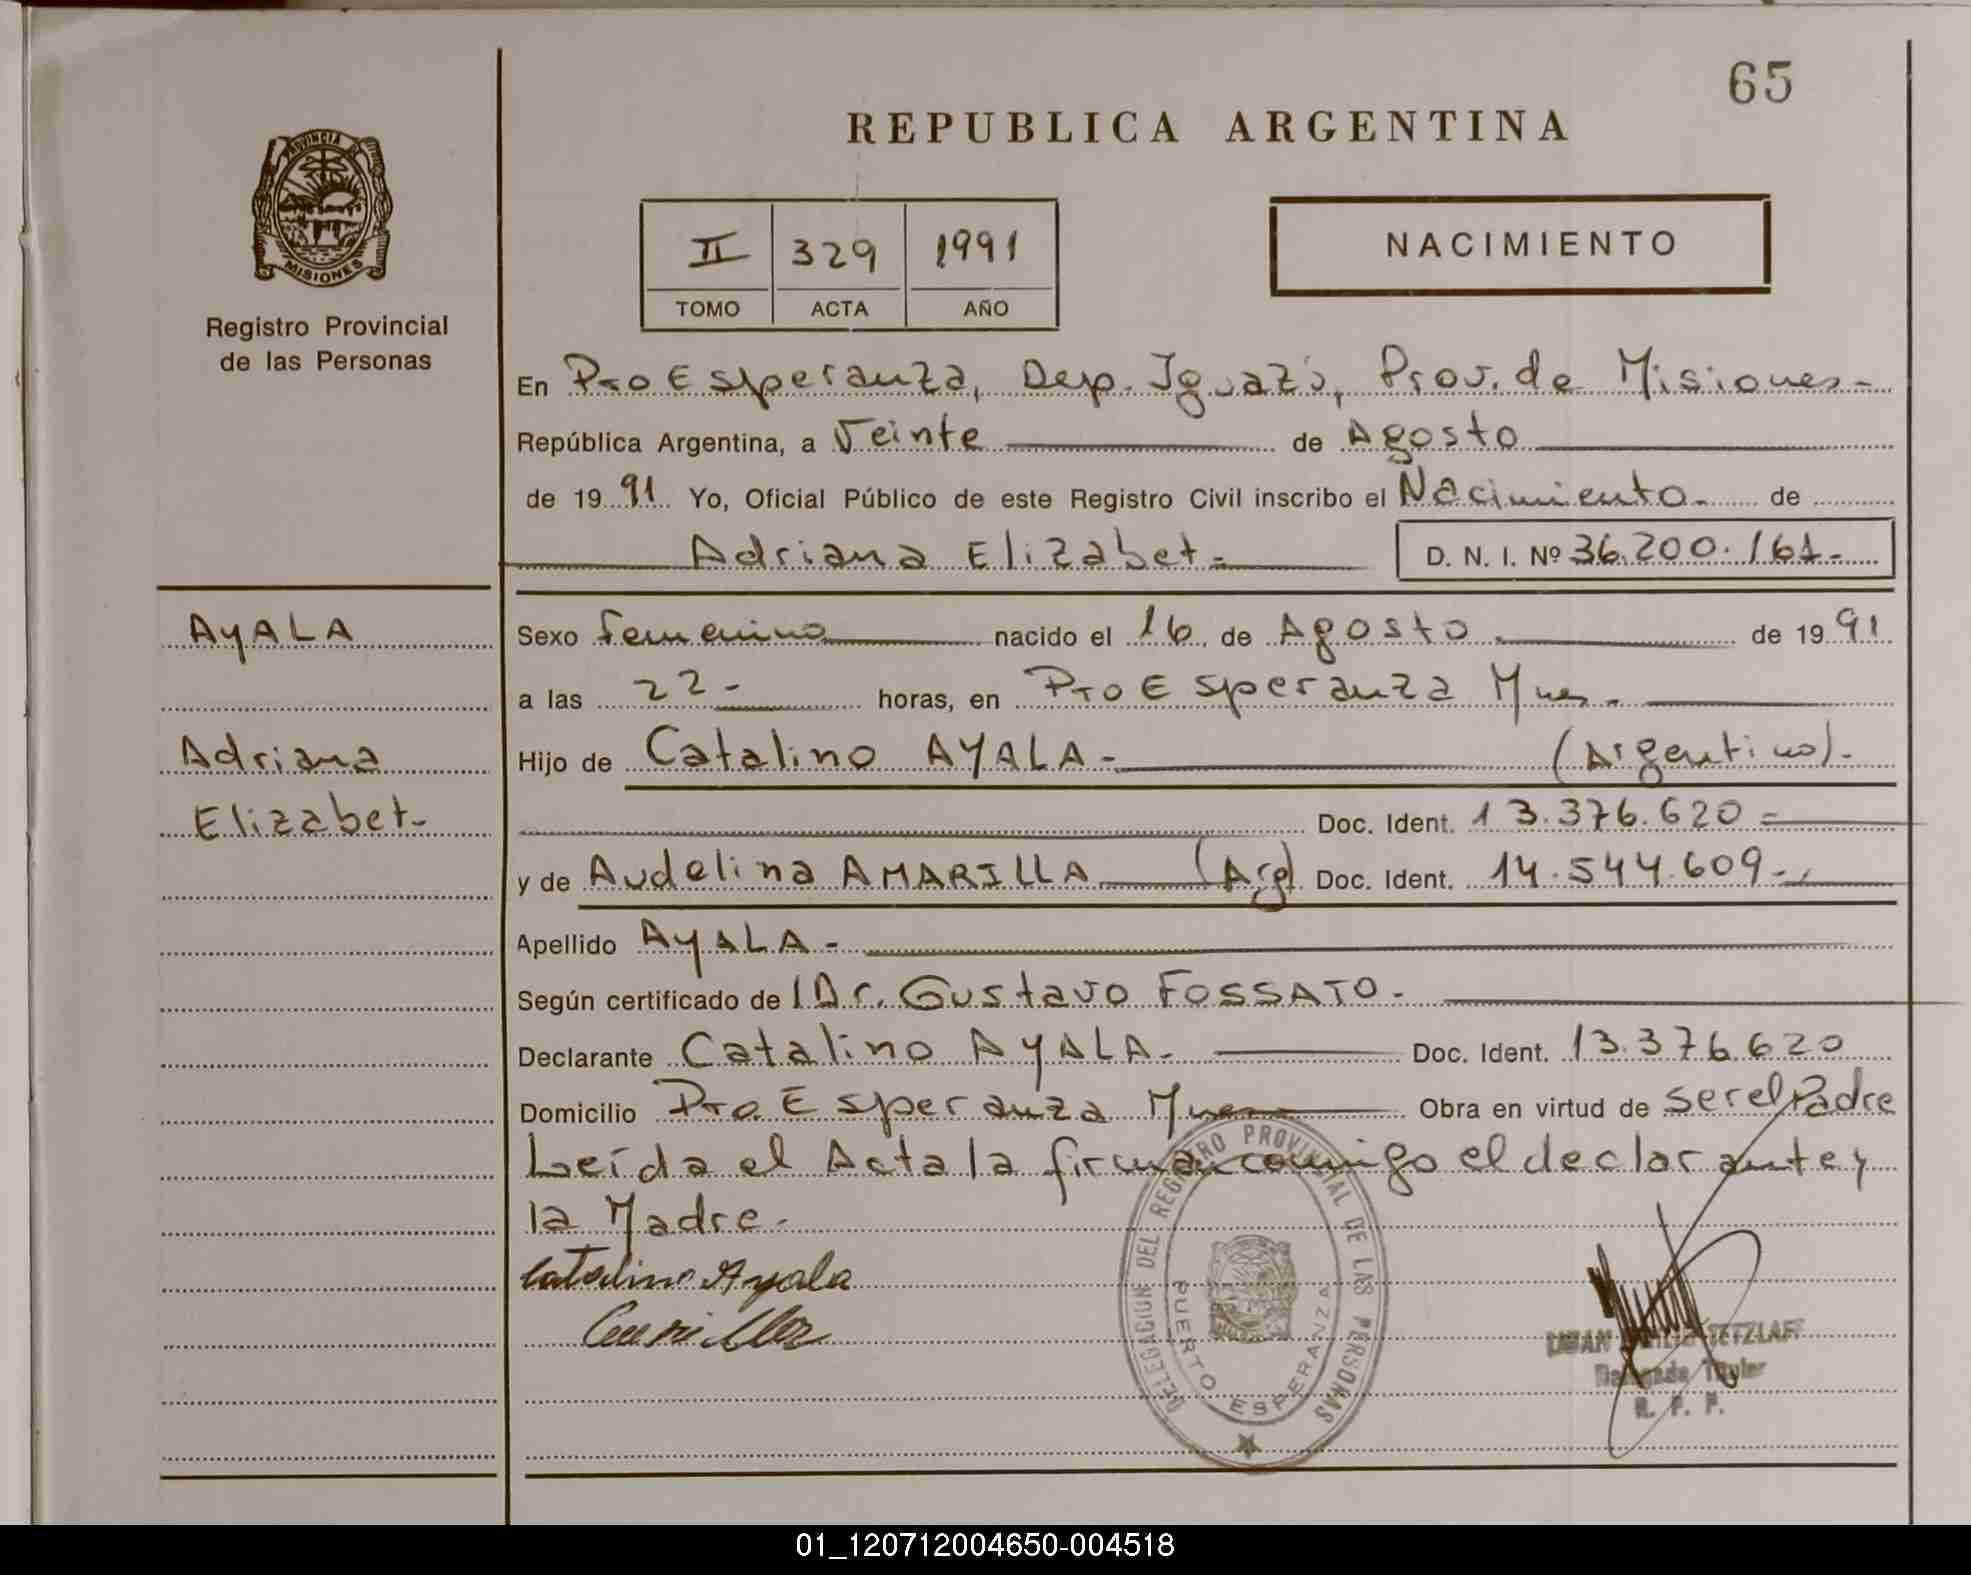 65
REPUBLICA ARGENTINA
PROVINCIA DE
MISIONES
Registro Provincial
de las Personas
II 329 1991
TOMO ACTA AÑO
NACIMIENTO
En Pto Esperanza, Dep. Iguazú, Prov. de Misiones-
República Argentina, a Veinte de Agosto
de 1991 Yo, Oficial Público de este Registro Civil inscribo el Nacimiento- de
Adriana Elizabet- D. N. I. Nº 36.200.161-
AYALA
Adriana
Elizabet-
Sexo Femenino nacido el 16 de Agosto de 1991
a las 22- horas, en Pto Esperanza Mnes-
Hijo de Catalino AYALA- (Argentino)-
Doc. Ident. 13.376.620-
y de Audelina AMARILLA (Arg) Doc. Ident. 14.544.609-
Apellido AYALA-
Según certificado de Dr. Gustavo FOSSATO-
Declarante Catalino AYALA- Doc. Ident. 13.376.620
Domicilio Pto Esperanza Mnes Obra en virtud de ser el Padre
Leída el Acta la firman conmigo el declarante y
la Madre-
Catalino Ayala
DELEGACION DEL REGISTRO PROVINCIAL DE LAS PERSONAS
PUERTO ESPERANZA
TETZLAFF
Titular
R. P. P.
01_120712004650-004518